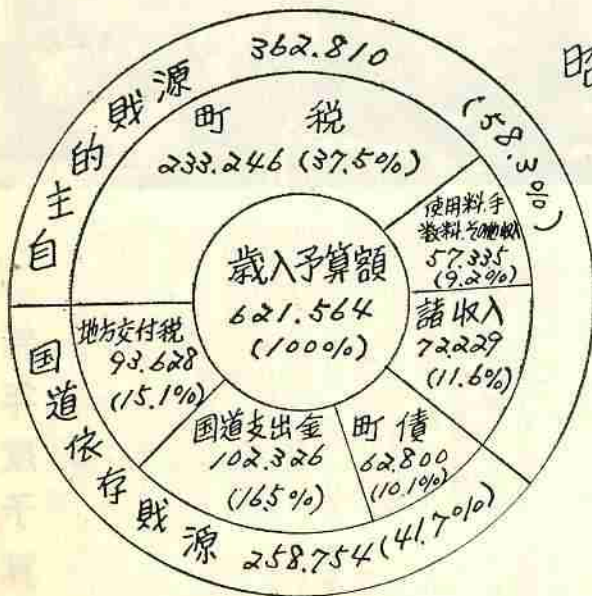 昭
自主的財源 362.810 (58.3%)
町税
233.246 (37.5%)
使用料.手
数料.その他収入
57.335
(9.2%)
諸収入
72229
(11.6%)
歳入予算額
621.564
(100%)
地方交付税
93.628
(15.1%)
国道支出金
102.326
(16.5%)
町債
62.800
(10.1%)
国道依存財源 258.754 (41.7%)
年度予算